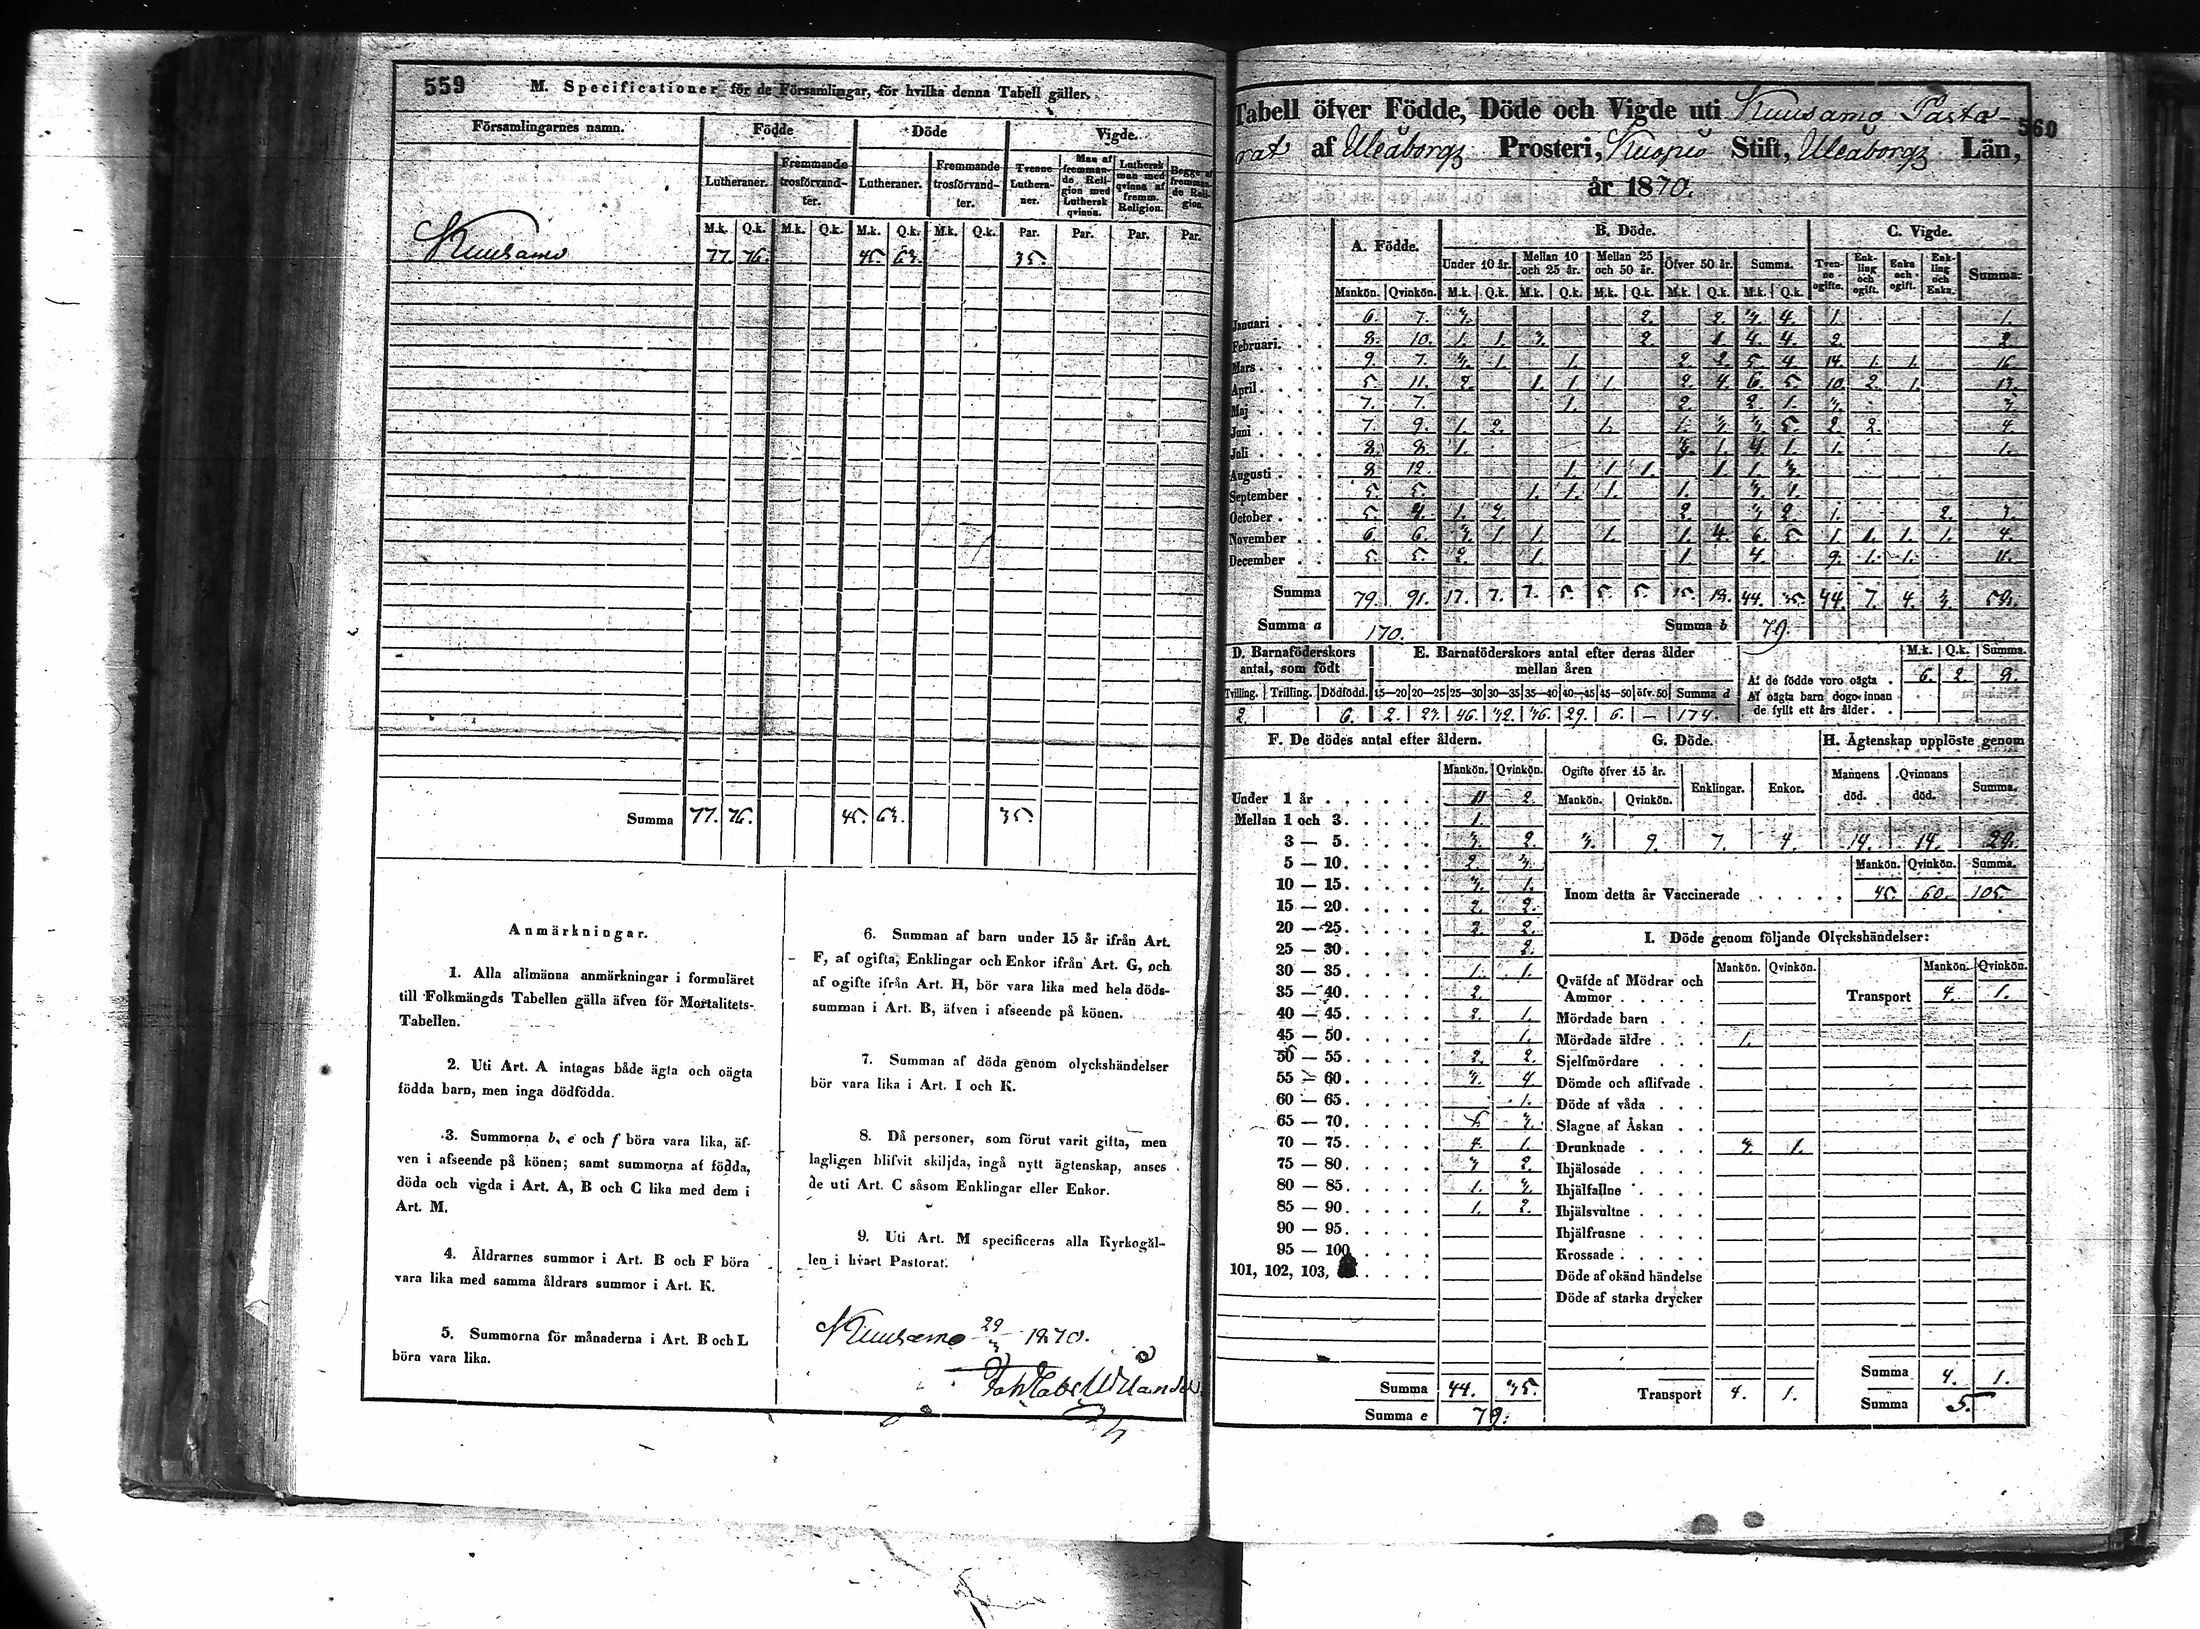 559 M. Specificationer för de Församlingar, för hvilka denna Tabell gäller.
Församlingarnes namn. Födde Döde Vigde.
Lutheraner. Fremmande trosförvandter. Lutheraner. Fremmande trosförvandter. Tvenne Lutheraner. Man af fremmande Religion med Luthersk qvinna. Luthersk man med qvinna af fremm. Religion. Begge af fremmande Religion.
M.k. Q.k. M.k. Q.k. M.k. Q.k. M.k. Q.k. Par. Par. Par. Par.
Kuusamo 77. 76. 45. 63. 35.
Summa 77. 76. 45. 63. 35.
Anmärkningar.
1. Alla allmänna anmärkningar i formuläret
till Folkmängds Tabellen gälla äfven för Mortalitets-
Tabellen.
2. Uti Art. A intagas både ägta och oägta
födda barn, men inga dödfödda.
3. Summorna b, e och f böra vara lika, äf-
ven i afseende på könen; samt summorna af födda,
döda och vigda i Art. A, B och C lika med dem i
Art. M.
4. Åldrarnes summor i Art. B och F böra
vara lika med samma åldrars summor i Art. K.
5. Summorna för månaderna i Art. B och L
böra vara lika.
6. Summan af barn under 15 år ifrån Art.
F, af ogifta, Enklingar och Enkor ifrån Art. G, och
af ogifte ifrån Art. H, bör vara lika med hela döds-
summan i Art. B, äfven i afseende på könen.
7. Summan af döda genom olyckshändelser
bör vara lika i Art. I och K.
8. Då personer, som förut varit gifta, men
lagligen blifvit skiljda, ingå nytt ägtenskap, anses
de uti Art. C såsom Enklingar eller Enkor.
9. Uti Art. M specificeras alla Kyrkogäl-
len i hvart Pastorat.
Kuusamo 29/3 1870.
560
Tabell öfver Födde, Döde och Vigde uti Kuusamo Pasto-
rat af Uleåborgs Prosteri, Kuopio Stift, Uleåborgs Län,
år 1870.
A. Födde. B. Döde. C. Vigde.
Under 10 år. Mellan 10 och 25 år. Mellan 25 och 50 år. Öfver 50 år. Summa. Tvenne ogifte. Enkling och ogift. Enka och ogift. Enkling och Enka. Summa.
Mankön. Qvinkön. M.k. Q.k. M.k. Q.k. M.k. Q.k. M.k. Q.k. M.k. Q.k.
Januari 6. 7. 3. 2. 2. 3. 4. 1. 1.
Februari. 8. 10. 1. 1. 3. 2. 1. 4. 4. 2. 2.
Mars 9. 7. 3. 1. 1. 2. 2. 5. 4. 14. 1. 1. 16.
April 5. 11. 2. 1. 1. 1. 2. 4. 6. 5. 10. 2. 1. 13.
Maj 7. 7. 1. 2. 2. 1. 3. 3.
Juni 7. 9. 1. 2. 1. 1. 3. 3. 5. 2. 2. 4.
Juli 8. 8. 1. 3. 1. 4. 1. 1. 1.
Augusti 8. 12. 1. 1. 1. 1. 1. 3.
September 5. 5. 1. 1. 1. 1. 3. 1.
October 5. 4. 1. 2. 2. 3. 2. 1. 2. 3.
November 6. 6. 3. 1. 1. 1. 1. 4. 6. 5. 1. 1. 1. 1. 4.
December 5. 5. 2. 1. 1. 4. 9. 1. 1. 11.
Summa 79. 91. 17. 7. 7. 5. 5. 5. 15. 18. 44. 35. 44. 7. 4. 3. 58.
Summa a 170. Summa b 79.
D. Barnaföderskors antal, som födt E. Barnaföderskors antal efter deras ålder mellan åren M.k. Q.k. Summa.
Tvilling. Trilling. Dödfödd. 15—20 20—25 25—30 30—35 35—40 40—45 45—50 öfv. 50 Summa d
2. 6. 2. 23. 46. 32. 36. 29. 6. — 174.
Af de födde voro oägta 6. 2. 8.
Af oägta barn dogo innan
de fyllt ett års ålder.
F. De dödes antal efter åldern. G. Döde. H. Ägtenskap upplöste genom
Mankön. Qvinkön. Ogifte öfver 15 år. Mankön. Qvinkön. Enklingar. Enkor. Mannens död. Qvinnans död. Summa.
3. 9. 7. 4. 14. 14. 28.
Mankön. Qvinkön. Summa.
Inom detta år Vaccinerade 45. 60. 105.
Under 1 år 11 2.
Mellan 1 och 3. 1.
3 — 5. 3. 2.
5 — 10. 2. 3.
10 — 15. 3. 1.
15 — 20. 2. 2.
20 — 25. 2. 2.
25 — 30. 2.
30 — 35. 1. 1.
35 — 40. 2.
40 — 45. 2. 1.
45 — 50. 1.
50 — 55. 2.
55 — 60. 3. 4.
60 — 65. 1.
65 — 70.
70 — 75. 1.
75 — 80. 3 2.
80 — 85. 1. 3.
85 — 90. 1. 2.
90 — 95.
95 — 100
101, 102, 103,
Summa 44. 35.
Summa e 79.
I. Döde genom följande Olyckshändelser:
Mankön. Qvinkön. Mankön. Qvinkön.
Qväfde af Mödrar och
Ammor
Transport 4. 1.
Mördade barn
Mördade äldre 1.
Sjelfmördare
Dömde och aflifvade
Döde af våda
Slagne af Åskan
Drunknade 3. 1.
Ihjälosade
Ihjälfallne
Ihjälsvultne
Ihjälfrusne
Krossade
Döde af okänd händelse
Döde af starka drycker
Transport 4. 1.
Summa 4. 1.
Summa 5.